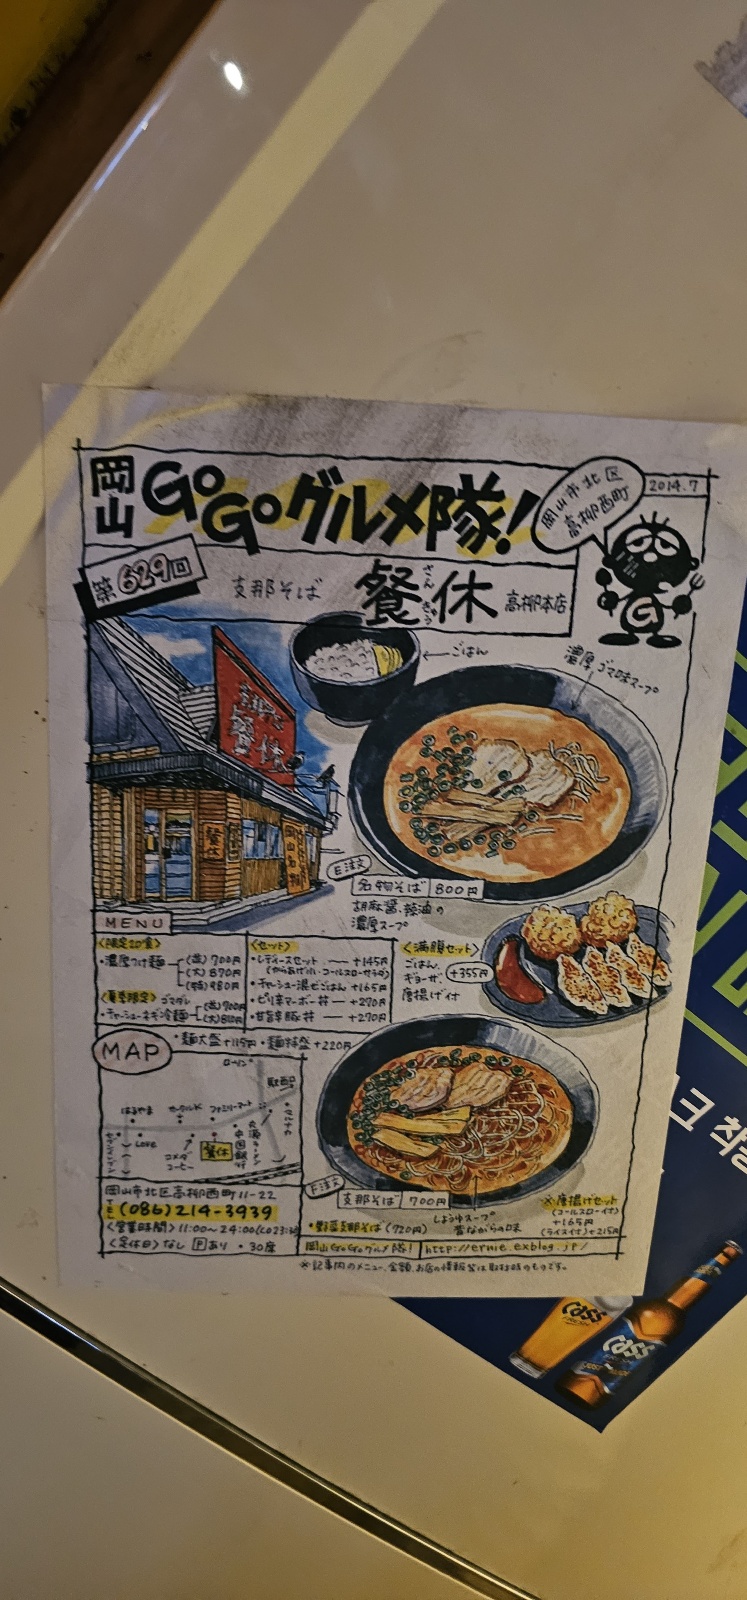 岡山 GoGoグルメ隊!
岡山市北区
高柳西町
2014.7
第629回
支那そば
餐休
さんきゅう
高柳本店
ごはん
濃厚ゴマ味スープ
餐休
餐休
E注文
名物そば 800円
胡麻醤、辣油の
濃厚スープ
MENU
〈限定20食〉
・濃厚つけ麺 (並) 700円
(大) 870円
(特) 980円
〈夏季限定〉ゴマダレ
・チャーシューネギ冷麺 (並) 700円
〈セット〉
・レディースセット +145円
(からあげ小・コールスローサラダ)
・チャーシュー混ぜごはん +165円
・ピリ辛マーボー丼 +270円
・甘旨辛豚丼 +270円
〈満腹セット〉
ごはん、
ギョーザ、
唐揚げ付
+355円
・麺大盛 +115円 ・麺特盛 +220円
MAP
はるやま
サークルK
ファミリーマート
セブンイレブン
Love
コメダコーヒー
餐休
中国銀行
岡山市北区高柳西町11-22
TEL (086)214-3939
〈営業時間〉11:00~24:00
〈定休日〉なし Pあり ・30席
F注文
支那そば 700円
しょうゆスープ
昔ながらの味
・野菜支那そば(720円)
※唐揚げセット
(コールスロー付)
+165円
(ライス付)+215円
岡山GoGoグルメ隊! http://ernie.exblog.jp/
※記事内のメニュー、金額、お店の情報等は取材時のものです。
크 착
Cass
Cass